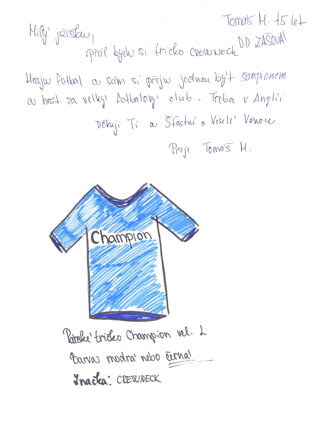 Tomáš M. 15 let
DD ZAŠOVÁ
Milý ježíšku,
přál bych si tričko CREWNECK
Hraju fotbal a sám si přeju jednou být šampionem
a hrát za velký fotbalový club. Třeba v Anglii
Děkuji Ti a Šťastné a Veselé Vánoce
Přeje Tomáš M.
Champion
Pánské tričko Champion vel. L
Barva modrá nebo černá!
Značka: CREWNECK